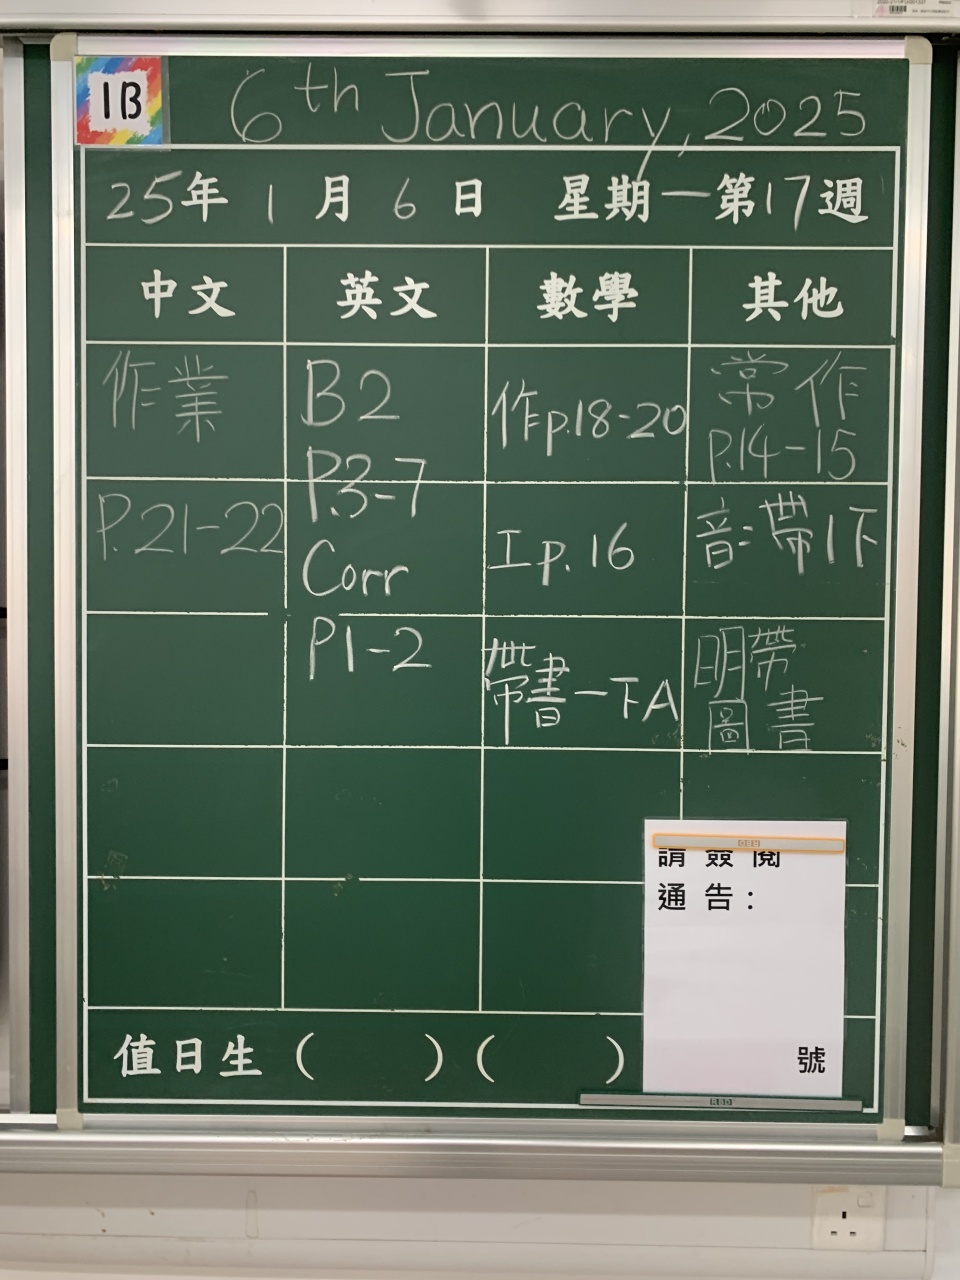 1B
6th January, 2025
25年 1月 6日 星期一第17週
中文 英文 數學 其他
作業
P.21-22
B2
P.3-7
Corr
P1-2
作p.18-20
工p.16
帶書一下A
常作
P.14-15
音:帶1下
明帶
圖書
請簽閱
通告:
號
值日生 ( ) ( )